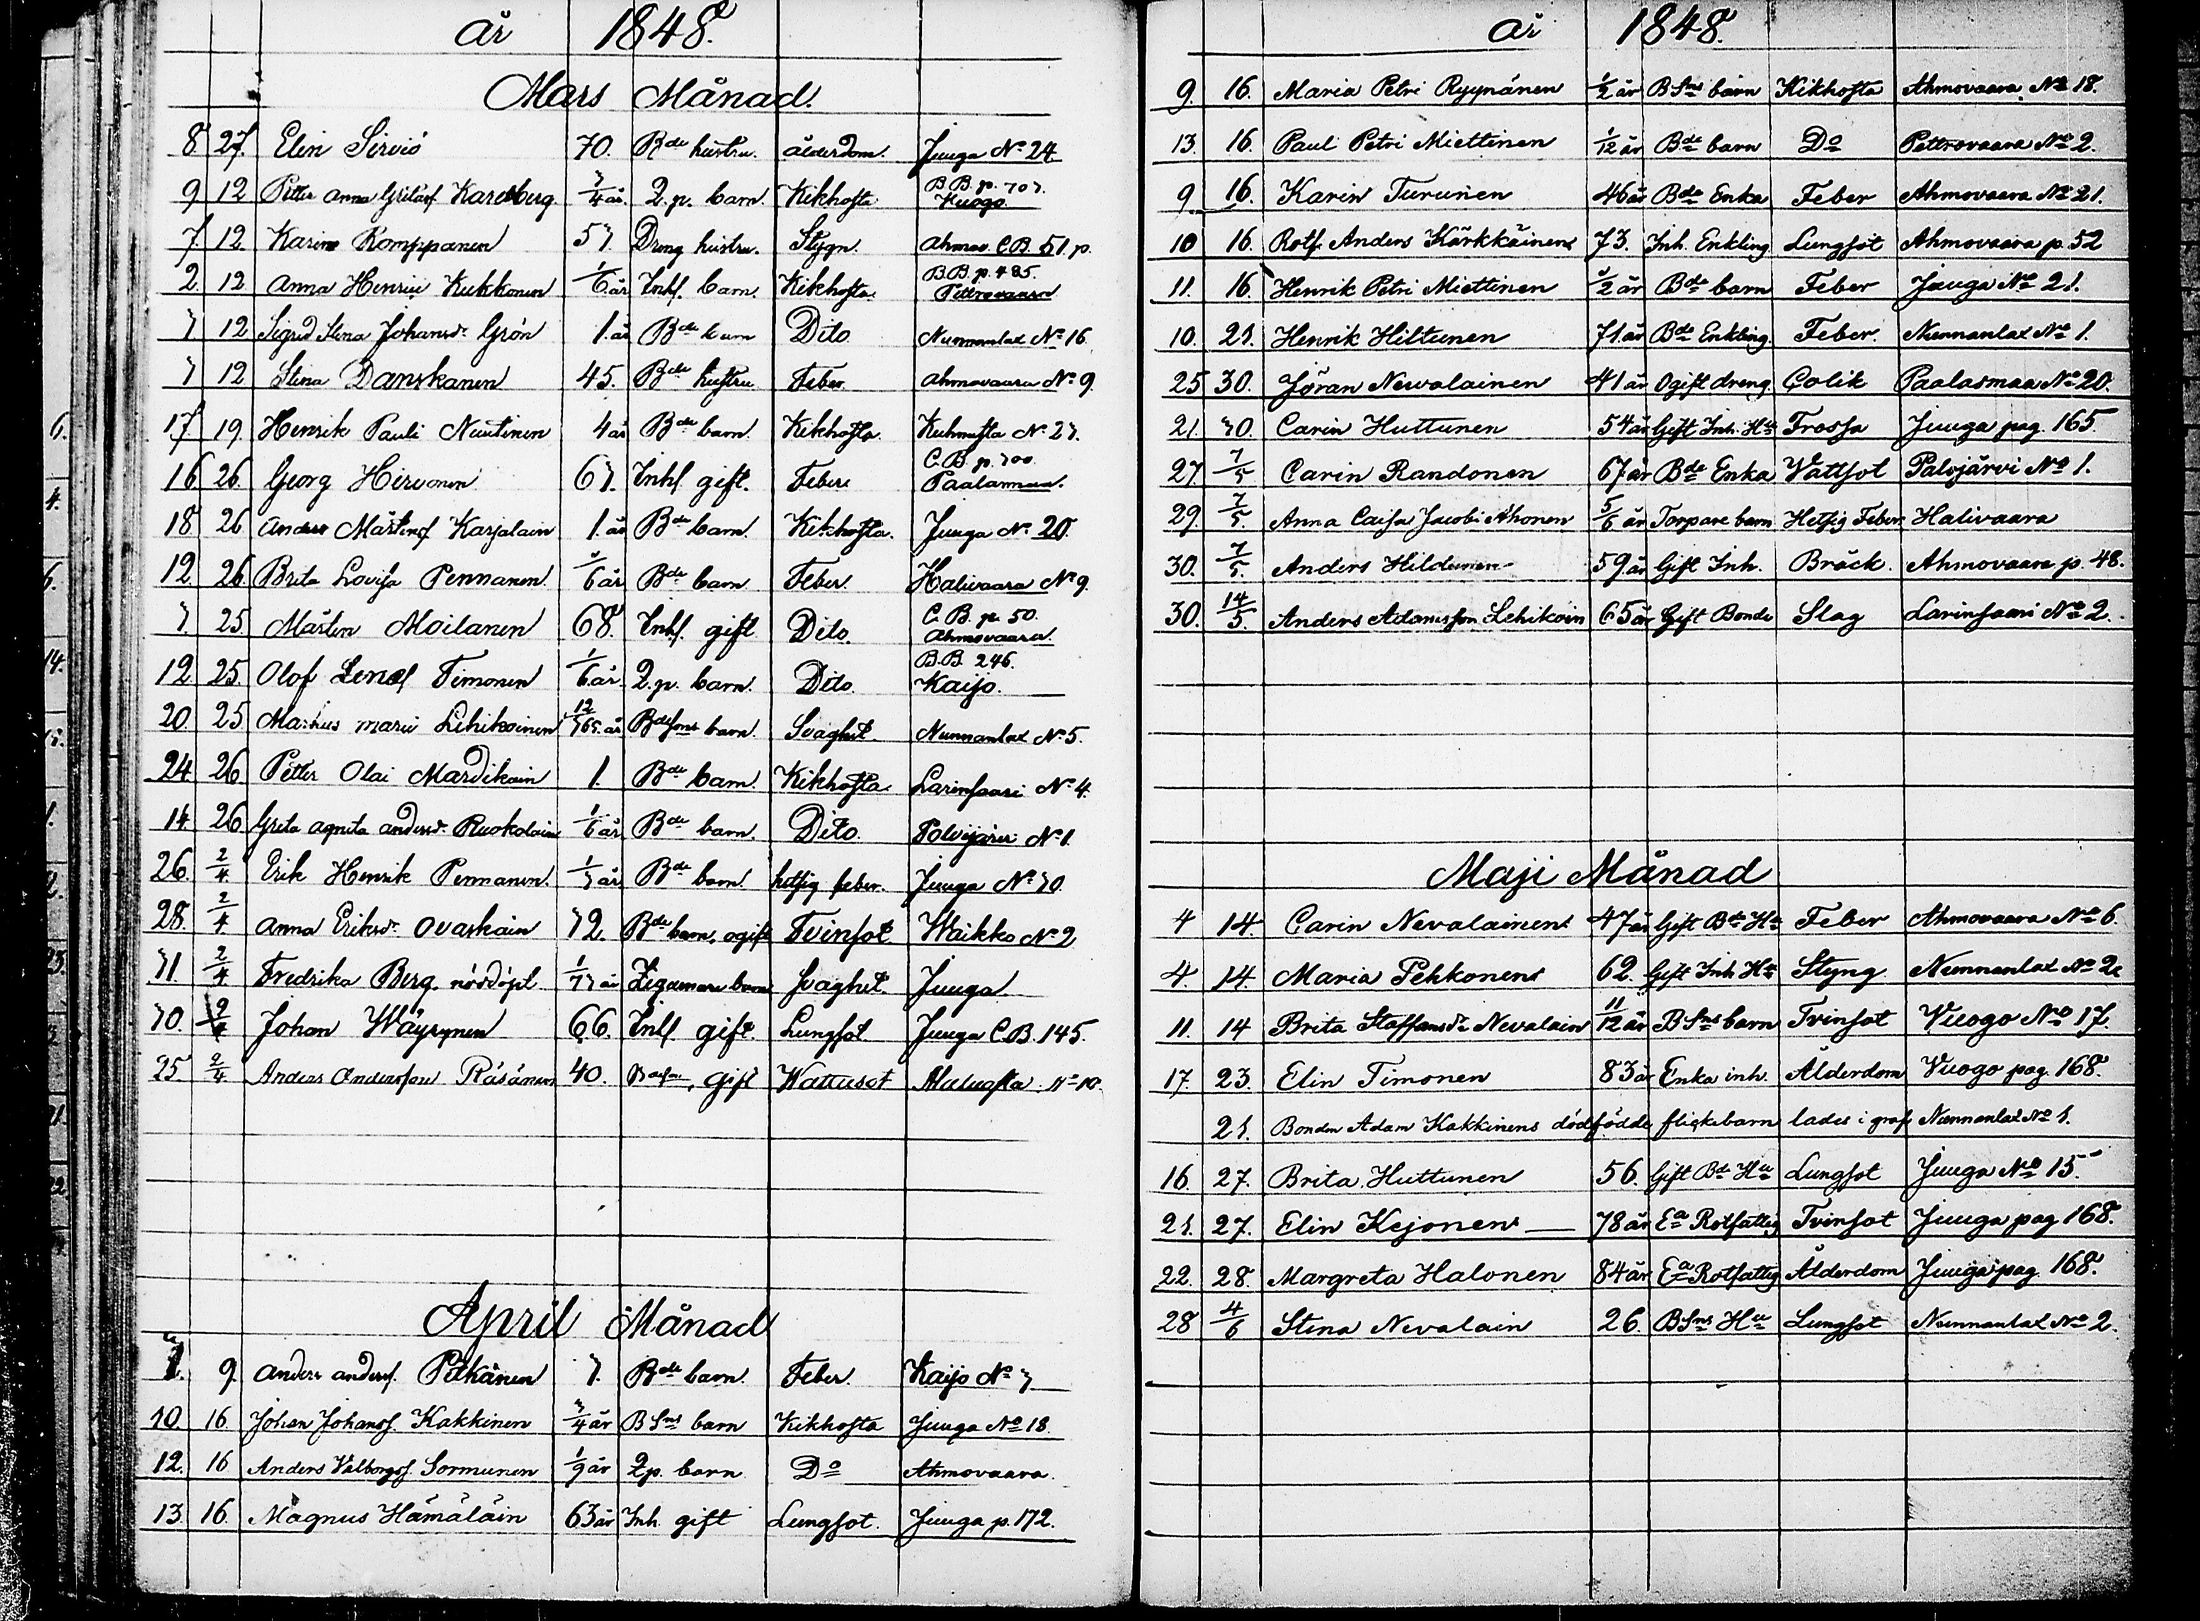 år 1848.
Mars Månad.
8 27. Elin Sirviö 70. Bde hustru. ålderdom. Juuga No 24
9 12 Petter Anna 3/4 år. 2. p. barn. Kikhosta B.B. p. 303. Vuogo.
7 12 Karin Komppanen 53. Dreng hustru. Stygn. Ahmov. C.B. 51. p.
2. 12 Anna Henrici Kukkonen 1/6 år Inh. barn. Kikhosta. B.B. p. 485. Petrovaara
3 12 Sigrid Stina Johansdr Grön 1. år Bde barn Dito Nunnanlax No 16.
3 12 Stina Danskanen 45. Bde hustru Feber. Ahmovaara No 9.
17 19. Henrik Pauli Nuutinen 4 år Bde barn. Kikhosta. Kuhnusta No 23.
16 26. Georg Hirvonen 63. Inh. gift. Feber C.B. p. 300. Paalasmaa.
18 26 Anders Mårtensf Karjalain 1. år Bde barn. Kikhosta. Juuga No 20.
12 26 Brita Lovisa Pennanen. 1/6 år Bde barn Feber Halivaara No 9.
3. 25. Mårten Moilanen 68. Inh. gift Dito. C.B. p. 50. Ahmovaara.
12. 25. Olof Timonen 1/6 år. 2. p. barn. Dito. B.B. 246. Kaijo.
20. 25 Markus Lehikoinen 12/365. år Bdesons barn. Svaghet. Nunnanlax No 5.
24 26 Petter Olai Mardikain 1. Bde barn. Kikhosta. Larinsaari No 4.
14 26 Greta Agneta Andersdr. Ruokolain 1/6 år Bde barn. Dito. Polvijärvi No 1.
26. 2/4 Erik Henrik Pennanen. 1/3 år Bde barn. hetsig feber. Juuga No 30.
28. 2/4 Anna Eriksdr. Ovaskain 32. Bde barn, ogift Tvinsot Waikko No 2
31 2/4 Fredrika Berg. nöddöpt år barn svaghet. Juuga.
30. 2/4 Johan Wäyrynen 66. Inh. gift. Lungsot. Juuga C.B. 145.
25. 2/4 Anders Andersson Räsänen 40. gift Wattusot No 10.
April Månad
1. 9 Anders Andersf. Pitkänen 3. Bde barn. Feber. Kaijo No 3
10. 16. Johan Johansf. Kakkinen 3/4 år BSns barn Kikhosta Juuga No 18.
12. 16 Anders Valborgsf. Sormunen 1/9 år 2 p. barn Do Ahmovaara.
13. 16. Magnus Hämäläin 63 år Inh. gift Lungsot. Juuga p. 172.
år 1848.
9. 16. Maria Petri Ryynänen 1/2 år BSns barn Kikhosta Ahmovaara No 18.
13. 16. Paul Petri Miettinen 1/12 år Bde barn Do Petrovaara No 2.
9 16. Karin Turunen 46 år Bde Enka Feber Ahmovaara No 21.
10 16. Rotf. Anders Kärkkäinen 73. Inh. Enkling Lungsot Ahmovaara p. 52
11. 16. Henrik Petri Miettinen 1/2 år Bde barn Feber Juuga No 21.
10. 21. Henrik Hiltunen 71 år Bde Enkling Feber. Nunnanlax No 1.
25 30. Jöran Nevalainen 41 år Ogift dreng. Colik Paalasmaa No 20.
21. 30. Carin Huttunen 54 år Gift Inh. Hu Frossa Juuga pag. 165.
27. 7/5 Carin Randonen 67 år Bde Enka Wattsot Polvijärvi No 1.
29. 7/5. Anna Caisa Jacobi Ahonen 5/6 år Torpare barn Hetsig Feber Halivaara
30. 7/5. Anders Hildunen 59 år Gift Inh. Bråck. Ahmovaara p. 48.
30. 14/5. Anders Adamsson Lehikoin 65 år Gift Bonde Slag Larinsaari No 2.
Maji Månad
4 14. Carin Nevalainen 47 år Gift Bde Hu Feber Ahmovaara No 6.
4. 14. Maria Pehkonen 62. Gift Inh Hu Styng Nunnanlax No 2.
11. 14 Brita Staffansdr Nevalain 11/12 år BSns barn Tvinsot Vuogo No 17.
17. 23. Elin Timonen 83 år Enka inh. Ålderdom Vuogo pag. 168.
21. Bonden Adam Kakkinens dödfödde flickebarn lades i graf Nunnanlax No 1.
16. 27. Brita Huttunen 56. Gift Bde Hu Lungsot Juuga No 15.
21. 27. Elin Kejonen 78 år Ea Rotfattig Tvinsot Juuga pag 168.
22. 28. Margreta Halonen 84 år Ea Rotfattig Ålderdom Juuga pag. 168.
28 4/6 Stina Nevalain 26. BSns Hu Lungsot Nunnanlax No 2.